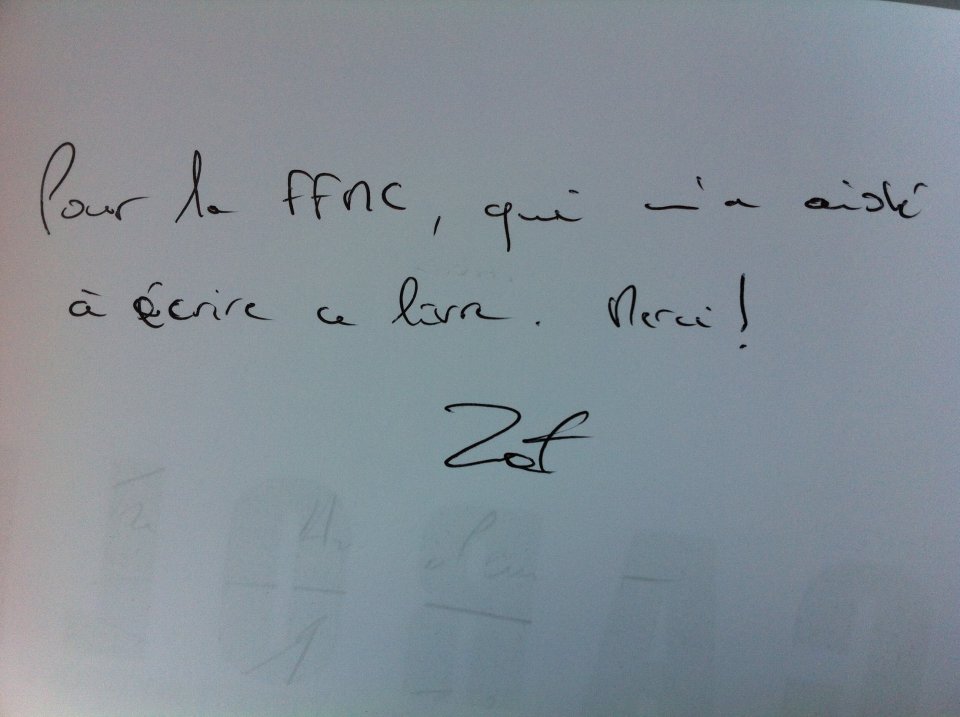 Pour la FFMC, qui m'a aidé
à écrire ce livre. Merci!
Zot